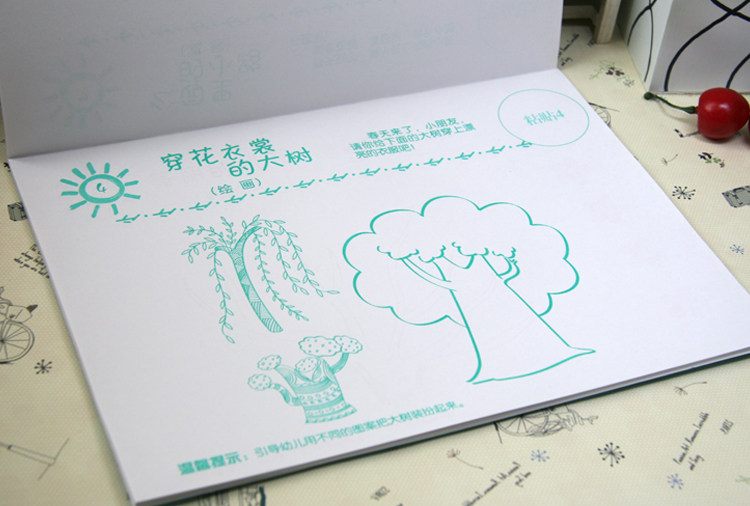 4
穿花衣裳
的大树
(绘 画)
春天来了，小朋友，
请你给下面的大树穿上漂
亮的衣服吧！
温馨提示：引导幼儿用不同的图案把大树装扮起来。